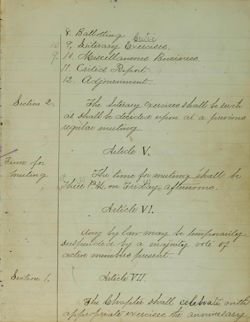 8. Balloting
10 9. Literary Exercises.
9 10. Miscellaneous Business.
11. Critics Report
12. Adjournment.
Section 2. The literary exercises shall be such
as shall be decided upon at a previous
regular meeting
Article V.
Time for
meeting
The time for meeting shall be
three P.M. on Friday afternoons.
Article VI.
Any by law may be temporarily
suspended by a majority vote of
active members present.
Section 1. Article VII.
The Chapter shall celebrate with
appropriate exercises the anniversary